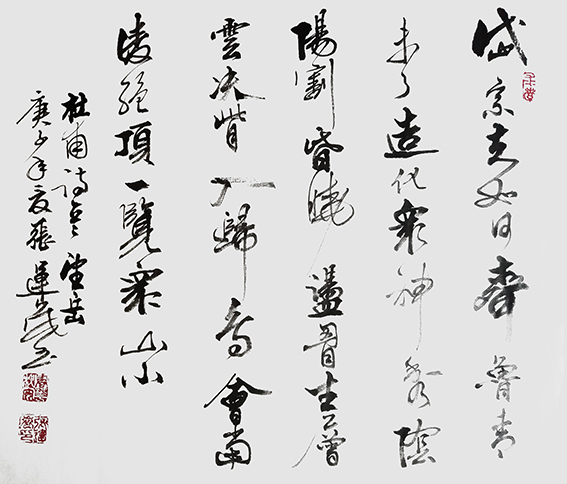 岱宗夫如何齊魯青
未了造化衆神秀陰
陽割昏曉盪胷生層
雲决眥入歸鳥會當
凌絕頂一覽衆山小
杜甫詩望岳
庚子年夏張運書